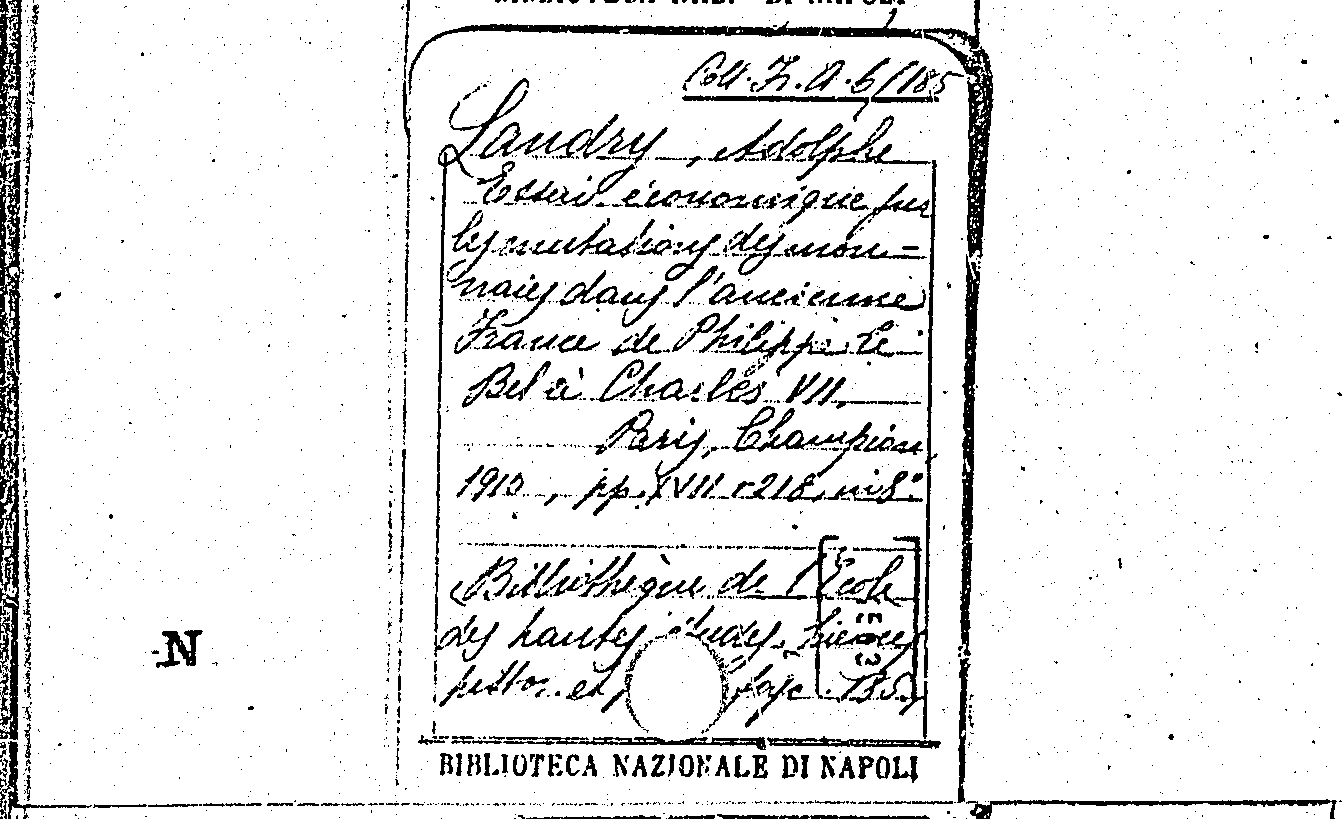 BIBLIOTECA NAZ. DI NAPOLI
Coll. Fr. A. 6/185
Landry, Adolphe
Essai économique sur
les mutations des mon=
naies dans l'ancienne
France de Philippe le
Bel à Charles VII.
Paris, Champion,
1910, pp. XVII - 218, in 8°
(Bibliothèque de l'École
des hautes études, Sciences
histor. et fasc. 185.)
N
BIBLIOTECA NAZIONALE DI NAPOLI